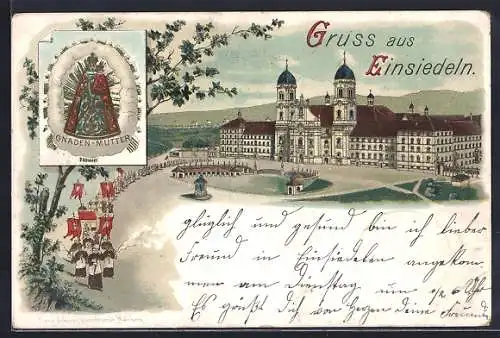 Gruss aus
Einsiedeln.
GNADEN-MUTTER
glüglich und gesund bin ich lieber
Freund in Einsiedeln angekom-
men am Dienstag um 1/2 6 Uhr
Es grüßt Dich von Herzen deine Freundin